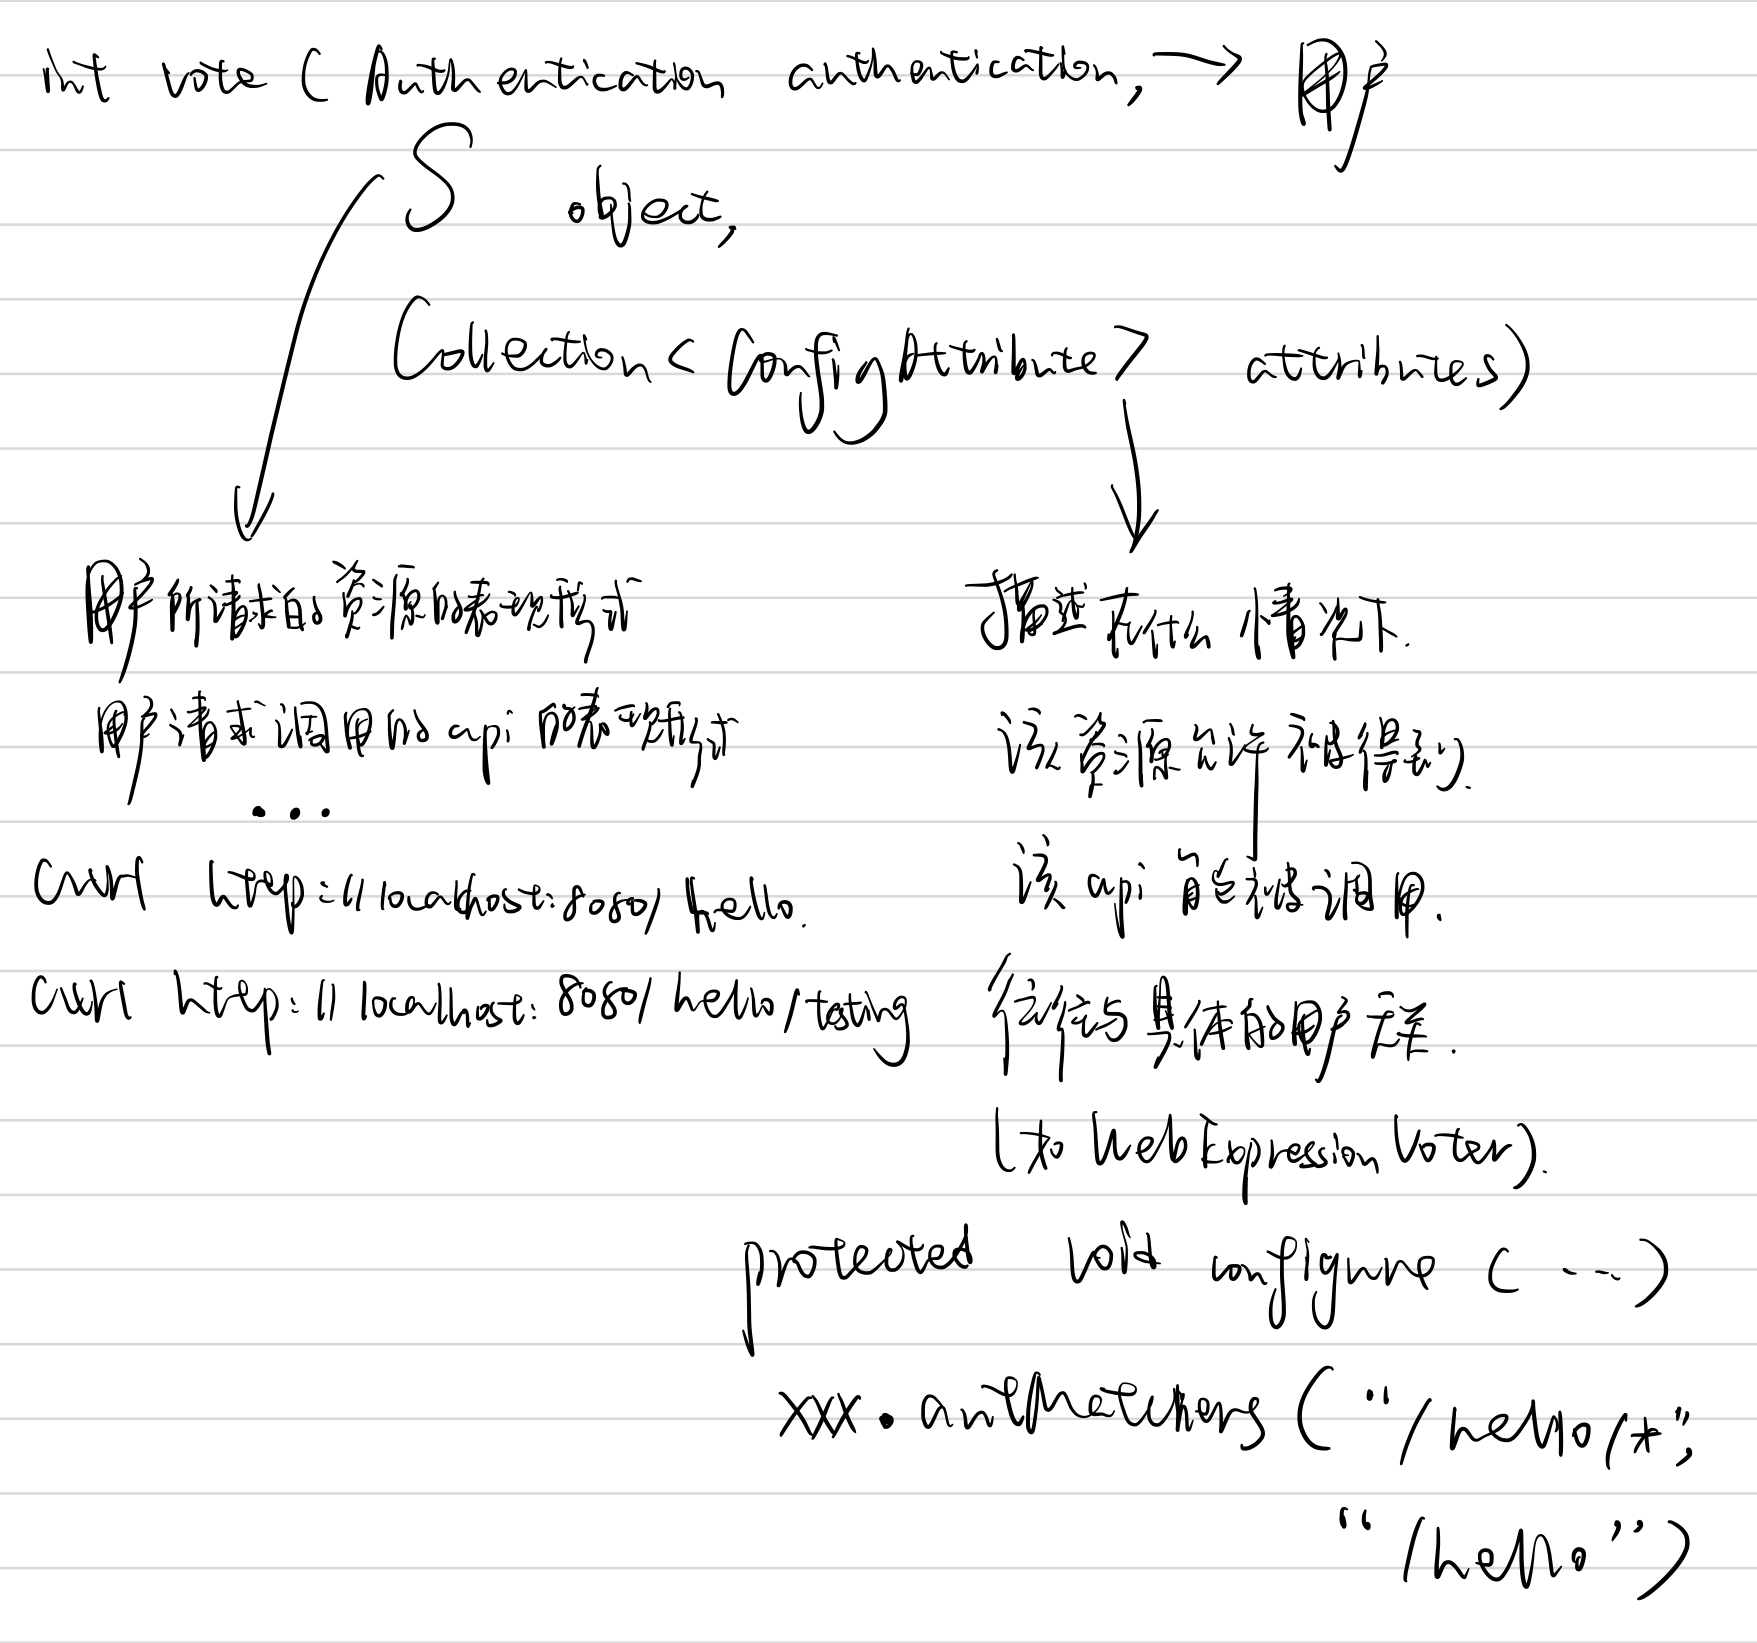 int vote ( Authentication authentication, → 用户
S object,
Collection < ConfigAttribute > attributes)
用户所请求的资源的表现形式
用户请求调用的api的表现形式
...
curl http://localhost:8080/hello.
curl http://localhost:8080/hello/testing
描述在什么情况下.
该资源允许被得到.
该api能被调用.
往往与具体的用户无关.
(如WebExpressionVoter).
protected void configure (...)
xxx.antMatchers ("/hello/*",
"/hello")